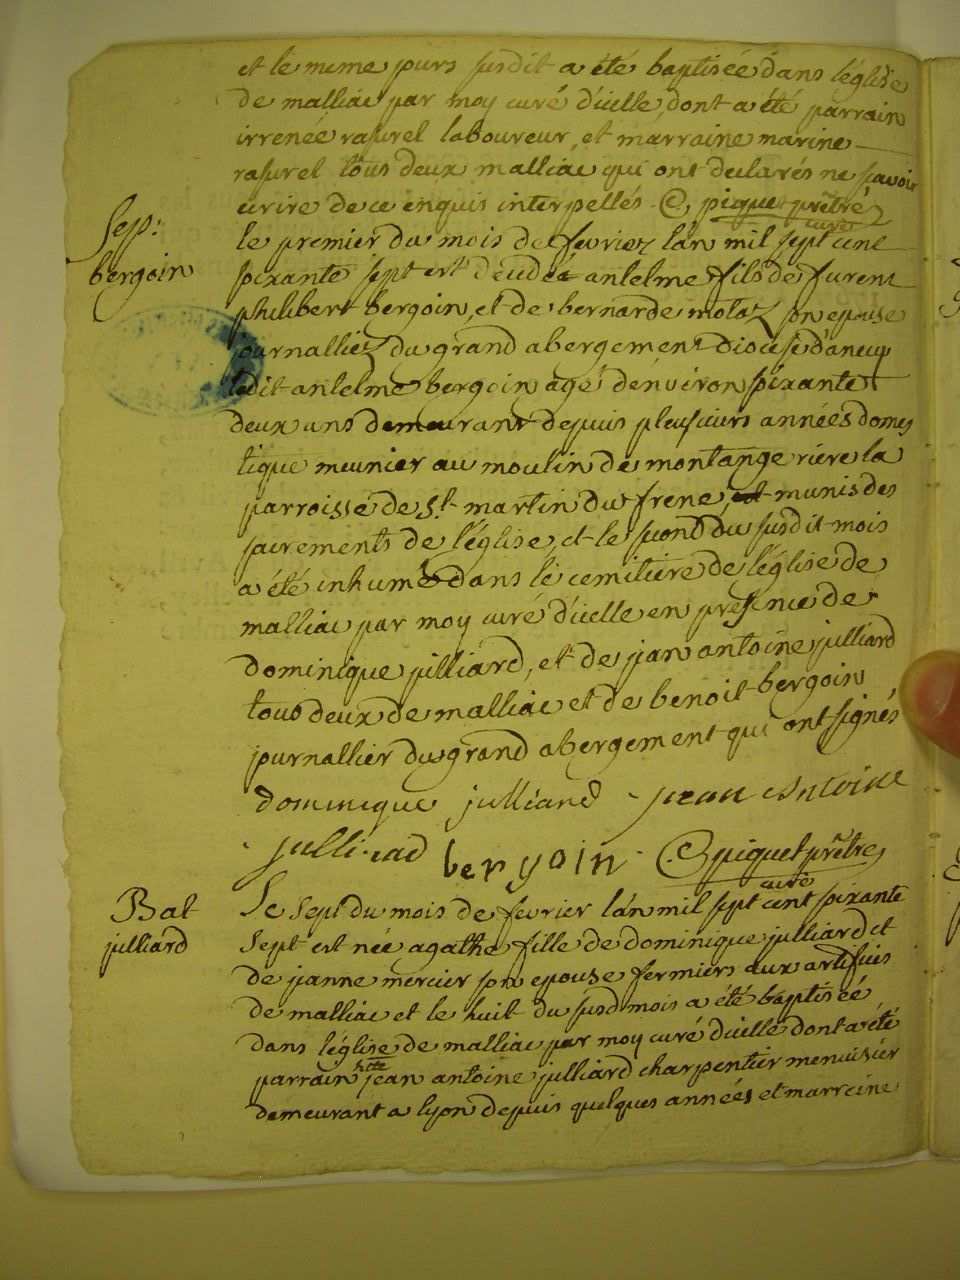 et le meme jours susdit a été baptisée dans léglise
de malliac par moy curé d'icelle, dont a été parrain
irrenée rasurel laboureur, et marraine marine
rasurel tous deux malliac qui ont declarés ne savoir
ecrire de ce enquis interpellés piquet prêtre
curé
Sep:
bergoin
le premier du mois de fevrier lan mil sept cent
soixante sept est decedé antelme fils de furent
philibert bergoin, et de bernarde molaz son epouse
journallier du grand abergement diocese danecy
ledit antelme bergoin agé denviron soixante
deux ans demeurant depuis plusieurs années domes
tique meunier au moulin de montange riere la
parroisse de St martin du frene, munis des
sacrements de léglise, et le second du susdit mois
a été inhumé dans le cemitiere de léglise de
malliac par moy curé d'icelle en presence de
dominique julliard, et de jean antoine julliard
tous deux de malliac et de benoit bergoin
journallier du grand abergement qui ont signés
dominique julliard jean Antoine
julliard bergoin piquet prêtre
curé
Bat
julliard
Le sept du mois de fevrier lan mil sept cent soixante
sept est née agathe fille de dominique julliard et
de janne mercier son epouse fermiers aux artifices
de malliac et le huit du susd mois a été baptisée
dans léglise de malliac par moy curé d'icelle dont a été
parrain htte jean antoine julliard charpentier menuisier
demeurant a lyon depuis quelques années et marreine